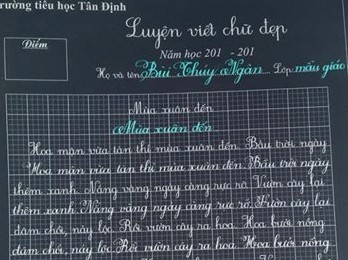 rường tiểu học Tân Định
Luyện viết chữ đẹp
Điểm
Năm học 201 - 201
Họ và tên Bùi Thúy Ngân Lớp: mẫu giáo
Mùa xuân đến
Mùa xuân đến
Hoa mận vừa tàn thì mùa xuân đến. Bầu trời ngày
Hoa mận vừa tàn thì mùa xuân đến. Bầu trời ngày
thêm xanh. Nắng vàng ngày càng rực rỡ. Vườn cây lại
thêm xanh. Nắng vàng ngày càng rực rỡ. Vườn cây lại
đâm chồi, nảy lộc. Rồi vườn cây ra hoa. Hoa bưởi nồng
đâm chồi, nảy lộc. Rồi vườn cây ra hoa. Hoa bưởi nồng